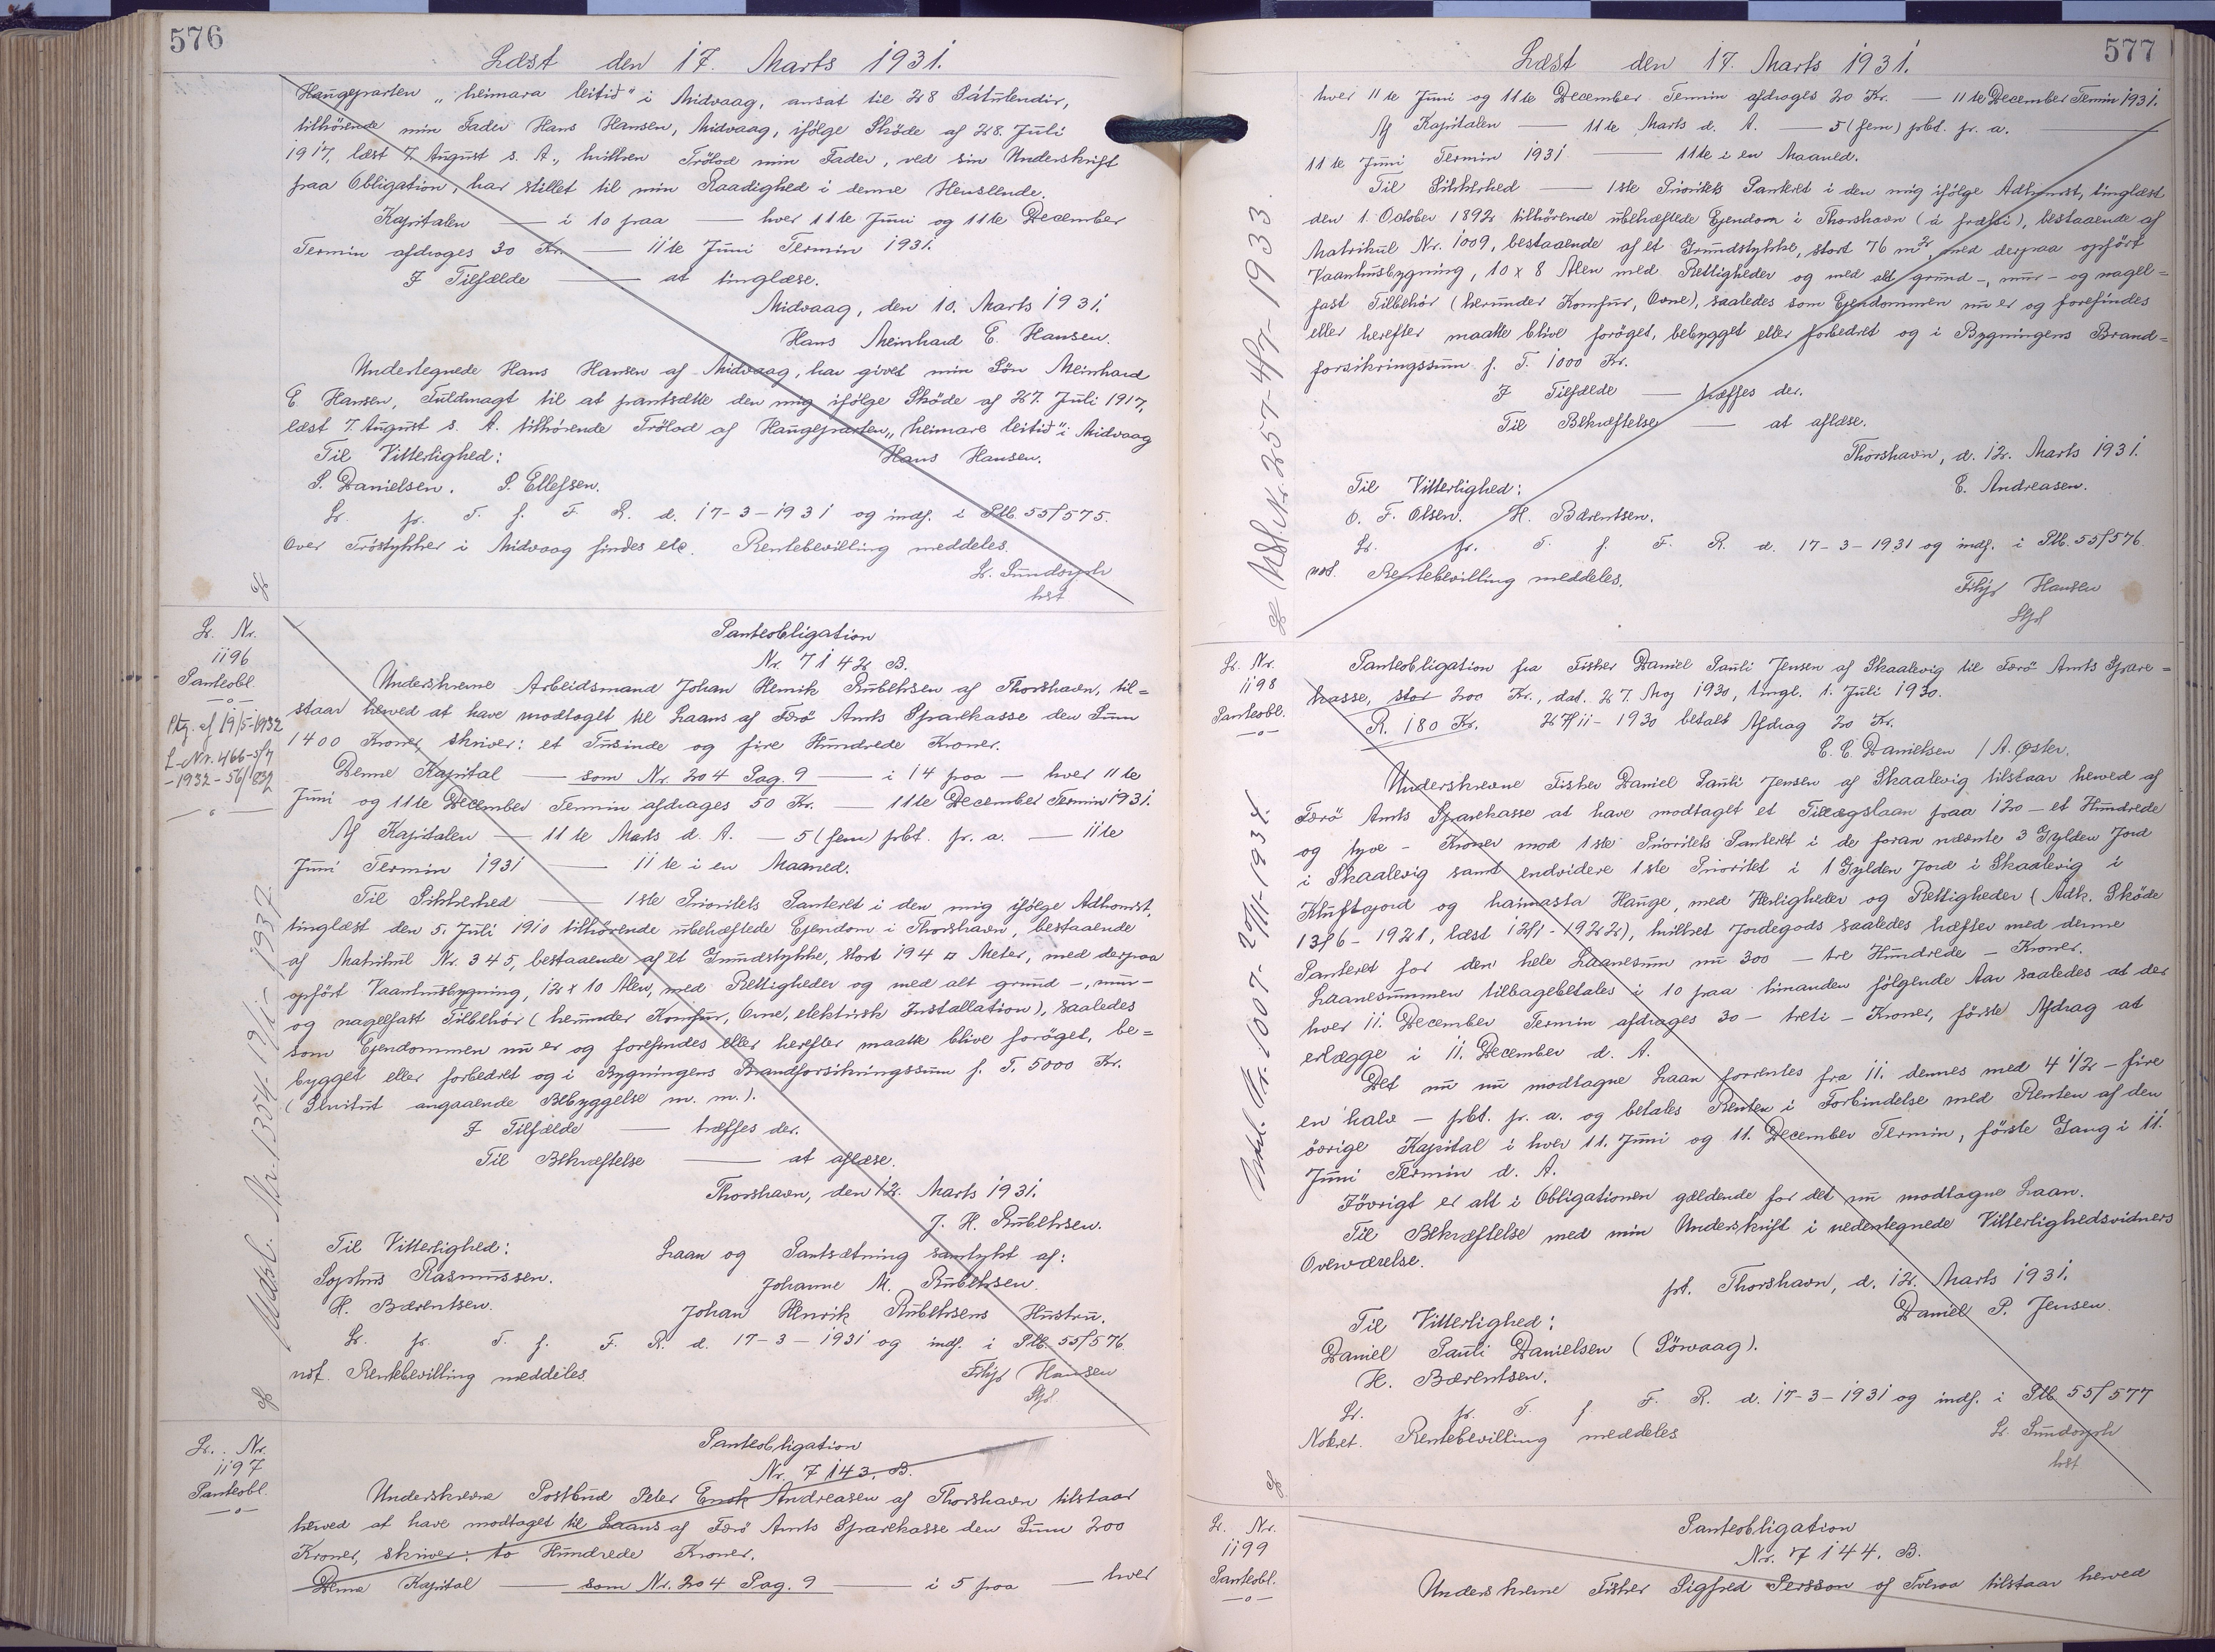 576
Læst den 17. Marts 1931.
Haugeparten „heimara leitið" i Midvaag, ansat til 28 Pátulendir,
tilhørende min Fader Hans Hansen, Midvaag, ifølge Skøde af 28. Juli
1917, læst 7. August s. A., hvilken Trölod min Fader, ved sin Underskrift
paa Obligation, har stillet til min Raadighed i denne Henseende.
Kapitalen — i 10 paa — hver 11te Juni og 11te December
Termin afdrages 30 Kr. — 11te Juni Termin 1931.
I Tilfælde — at tinglæse.
Midvaag, den 10. Marts 1931.
Hans Meinhard E. Hansen.
Undertegnede Hans Hansen af Midvaag, har givet min Søn Meinhard
E. Hansen, Fuldmagt til at pantsætte den mig ifølge Skøde af 27. Juli 1917,
læst 7. August s. A. tilhørende Trölod af Haugeparten „heimare leitið" i Midvaag
Til Vitterlighed: Hans Hansen.
P. Danielsen. P. Ellefsen.
Lr. pr. T. f. F. R. d. 17-3-1931 og indf. i Ptb. 55/575.
Over Tröstykker i Midvaag findes etc. Rentebevilling meddeles.
Lr. Sundorph
kst
Lr. Nr.
1196
Panteobl.
—o—
Ptg. af 19/5-1932
L-Nr. 466-5/7
-1932-56/832
—o—
Panteobligation
Nr. 7142 B.
Underskrevne Arbeidsmand Johan Henrik Rubeksen af Thorshavn, til=
staar herved at have modtaget til Laans af Færö Amts Sparekasse den Sum
1400 Kroner, skriver: et Tusinde og fire Hundrede Kroner.
Denne Kapital — som Nr. 204 Pag. 9 — i 14 paa — hver 11te
Juni og 11te December Termin afdrages 50 Kr. — 11te December Termin 1931.
Af Kapitalen — 11te Marts d. A. — 5 (fem) pct. pr. a. — 11te
Juni Termin 1931 — 11te i en Maaned.
Til Sikkerhed — 1ste Prioritets Panteret i den mig ifølge Adkomst,
tinglæst den 5. Juli 1910 tilhørende ubehæftede Ejendom i Thorshavn, bestaaende
af Matrikul Nr. 345, bestaaende af et Grundstykke, stort 194 □ Meter, med derpaa
opført Vaaningsbygning, 12 x 10 Alen, med Rettigheder og med alt grund-, mur-
og nagelfast Tilbehör (herunder Komfur, Ovne, elektrisk Installation), saaledes
som Ejendommen nu er og forefindes eller herefter maatte blive forøget, be=
bygget eller forbedret og i Bygningens Brandforsikringssum p. T. 5000 Kr.
(Servitut angaaende Bebyggelse m. m.).
I Tilfælde — træffes der.
Til Bekræftelse — at aflæse.
Thorshavn, den 12. Marts 1931.
J. H. Rubeksen.
Til Vitterlighed: Laan og Pantsætning samtykt af:
Sophus Rasmussen. Johanne M. Rubeksen.
H. Bærentsen. Johan Henrik Rubeksens Hustru.
Lr. pr. T. f. F. R. d. 17-3-1931 og indf. i Ptb. 55/576.
not. Rentebevilling meddeles.
Filip Hansen
Stpl
Udsl. Nr. 1354-19/1-1937.
Lr. Nr.
1197
Panteobl.
—o—
Panteobligation
Nr. 7143. B.
Underskrevne Postbud Peter Enok Andreasen af Thorshavn tilstaar
herved at have modtaget til Laans af Færö Amts Sparekasse den Sum 200
Kroner, skriver: to Hundrede Kroner.
Denne Kapital — som Nr. 204 Pag. 9 — i 5 paa — hver
577
Læst den 17. Marts 1931.
hver 11te Juni og 11te December Termin afdrages 20 Kr. — 11te December Termin 1931.
Af Kapitalen — 11te Marts d. A. — 5 (fem) pct. pr. a. —
11te Juni Termin 1931 — 11te i en Maaned.
Til Sikkerhed — 1ste Prioritets Panteret i den mig ifølge Adkomst, tinglæst
den 1. October 1892 tilhørende ubehæftede Ejendom i Thorshavn (á fræsti), bestaaende af
Matrikul Nr. 1009, bestaaende af et Grundstykke, stort 76 m², med derpaa opført
Vaaningsbygning, 10 x 8 Alen med Rettigheder og med alt grund-, mur- og nagel=
fast Tilbehør (herunder Komfur, Ovne), saaledes som Ejendommen nu er og forefindes
eller herefter maatte blive forøget, bebygget eller forbedret og i Bygningens Brand=
forsikringssum p. T. 1000 Kr.
I Tilfælde — træffes der.
Til Bekræftelse — at aflæse.
Thorshavn, d. 12. Marts 1931.
Til Vitterlighed: E. Andreasen.
O. F. Olsen. H. Bærentsen.
Lr. pr. T. f. F. R. d. 17-3-1931 og indf. i Ptb. 55/576
not. Rentebevilling meddeles.
Filip Hansen
Stpl
Udsl. Nr. 257-4/7-1933.
Lr. Nr.
1198
Panteobl.
—o—
Panteobligation fra Fisker Daniel Pauli Jensen af Skaalevig til Færö Amts Spare=
kasse, stor 200 Kr., dat. 27. Maj 1930, tingl. 1. Juli 1930.
R. 180 Kr. 27/11-1930 betalt Afdrag 20 Kr.
E. C. Danielsen / A. Øster.
Underskrevne Fisker Daniel Pauli Jensen af Skaalevig tilstaar herved af
Færö Amts Sparekasse at have modtaget et Tillægslaan paa 120 — et Hundrede
og tyve - Kroner mod 1ste Prioritets Panteret i de foran nævnte 3 Gylden Jord
i Skaalevig samt endvidere 1ste Prioritet i 1 Gylden Jord i Skaalevig i
Kluftajord og haimasta Hauge, med Herligheder og Rettigheder (Adk. Skøde
13/6-1921, læst 12/1-1922), hvilket Jordegods saaledes hæfter med denne
Panteret for den hele Laanesum nu 300 — tre Hundrede — Kroner.
Laanesummen tilbagebetales i 10 paa hinanden følgende Aar saaledes at der
hver 11. December Termin afdrages 30 - treti - Kroner, første Afdrag at
erlægge i 11. December d. A.
Det nu nu modtagne Laan forrentes fra 11. dennes med 4 1/2 - fire
en halv — pct. pr. a. og betales Renten i Forbindelse med Renten af den
övrige Kapital i hver 11. Juni og 11. December Termin, første Gang i 11.
Juni Termin d. A.
Iövrigt er alt i Obligationen gældende for det nu modtagne Laan.
Til Bekræftelse med min Underskrift i nedentegnede Vitterlighedsvidners
Overværelse.
pt. Thorshavn, d. 12. Marts 1931.
Til Vitterlighed: Daniel P. Jensen.
Daniel Pauli Danielsen (Sörvaag).
H. Bærentsen.
Lr. pr. T. f. F. R. d. 17-3-1931 og indf. i Ptb 55/577
Noteret. Rentebevilling meddeles
Lr. Sundorph
kst
Udsl. Nr. 1007-20/11-1934.
Lr. Nr.
1199
Panteobl.
—o—
Panteobligation
Nr. 7144. B.
Underskrevne Fisker Sigfred Persson af Tveraa tilstaar herved